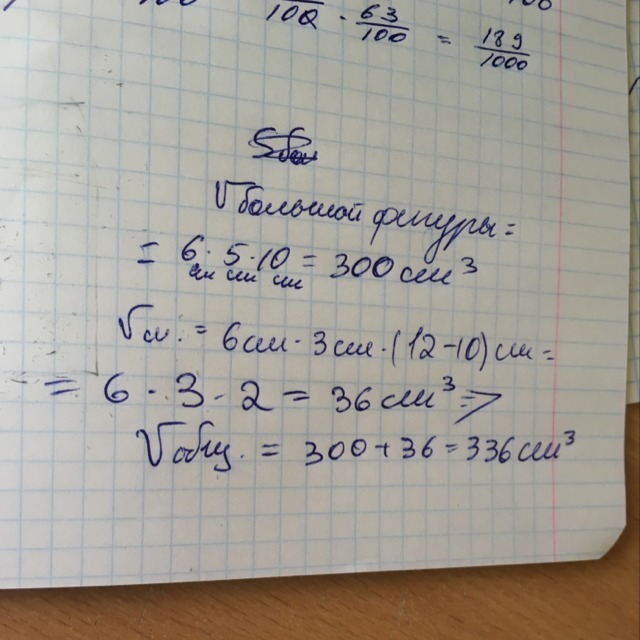 100
100 · 63/100 = 189/1000
100
V большой фигуры =
= 6 см · 5 см · 10 см = 300 см³
V м. = 6 см · 3 см · (12 - 10) см =
= 6 · 3 · 2 = 36 см³ =>
V общ. = 300 + 36 = 336 см³